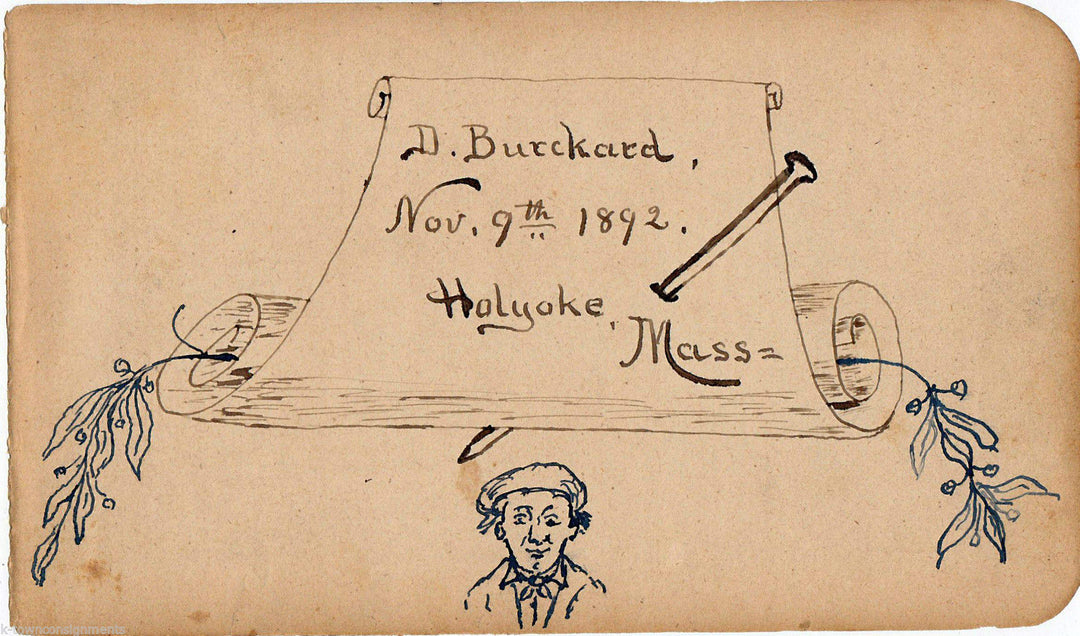 D. Burckard,
Nov. 9th 1892.
Holyoke,
Mass=
k-townconsignments